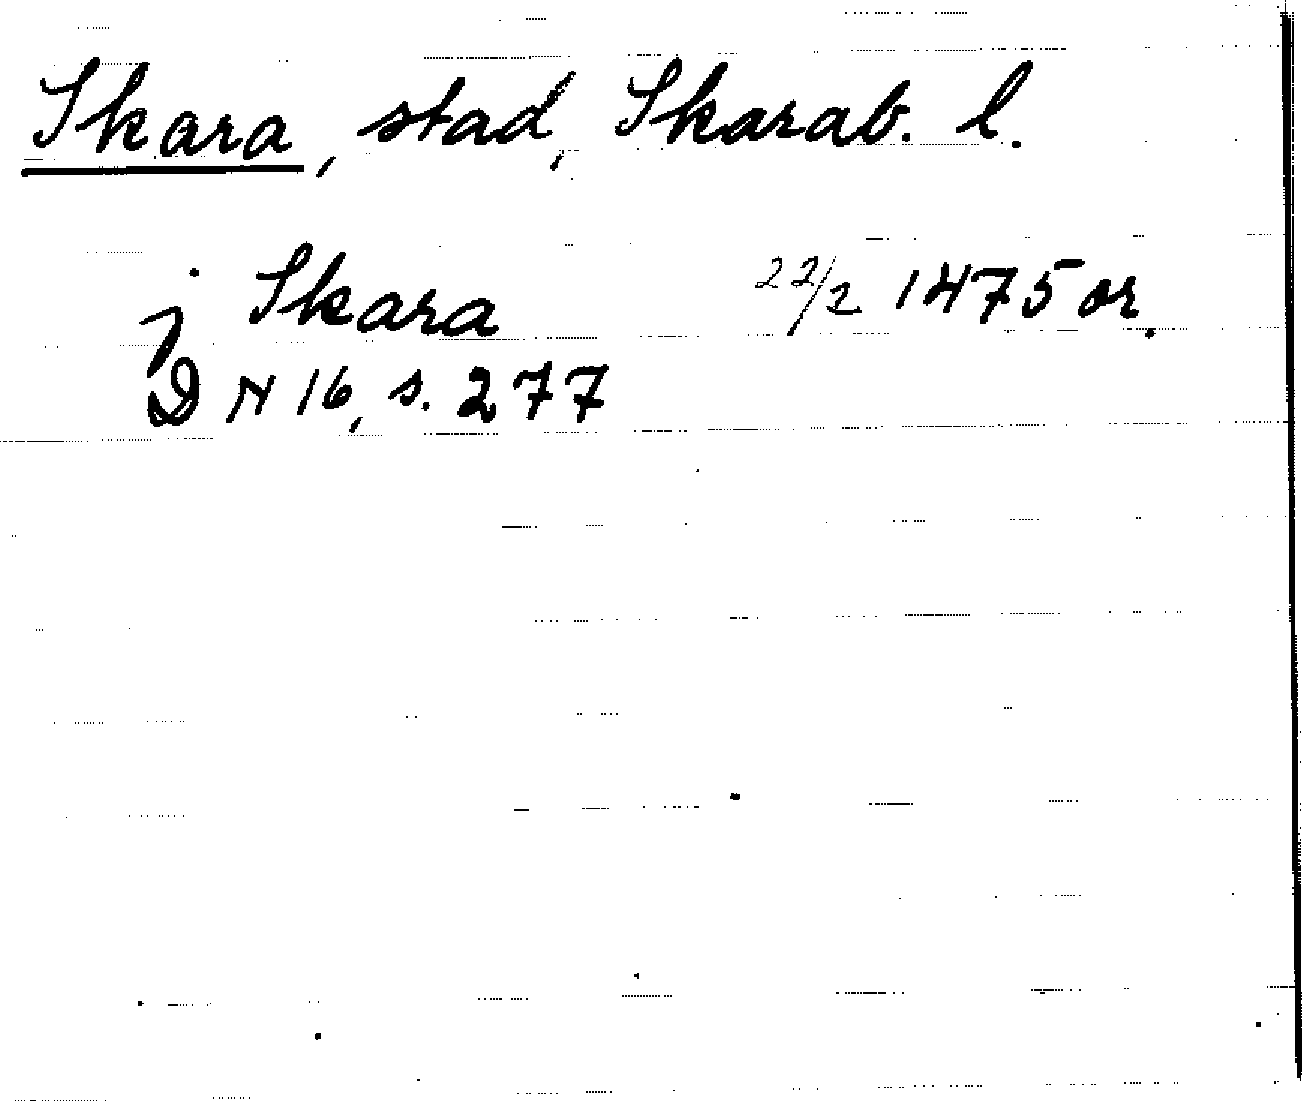 Skara, stad, Skarab. l.
j Skara 22/2 1475 or.
DN 16, s. 277